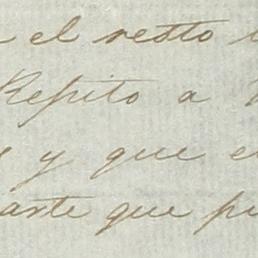 el resto
Repito a
y que e
arte que pu